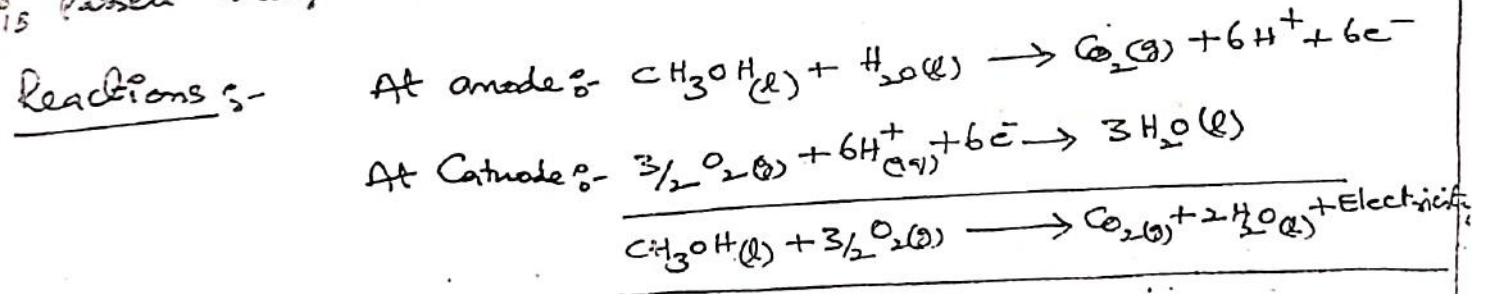 is Passed
Reactions :- At anode :- CH₃OH(l) + H₂O(l) → CO₂(g) + 6H⁺ + 6e⁻
At Catuode :- 3/2 O₂(g) + 6H⁺(aq) + 6e⁻ → 3H₂O(l)
CH₃OH(l) + 3/2 O₂(g) → CO₂(g) + 2H₂O(l) + Electricit